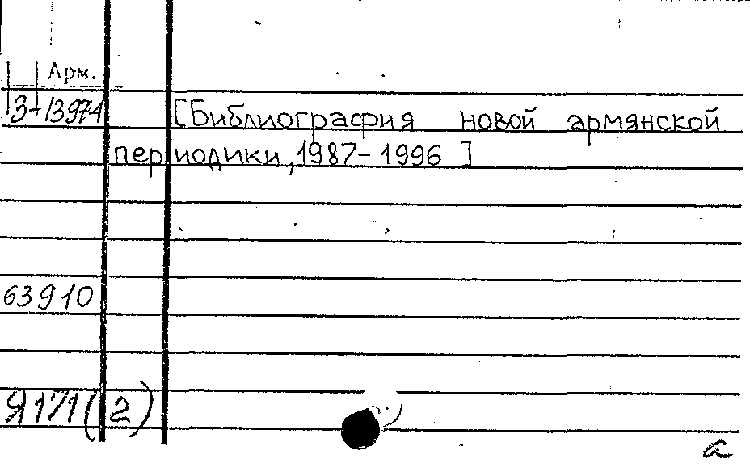 Арм.
3-13974
[Библиография новой армянской
периодики, 1987-1996]
63910
Я171(2)
а